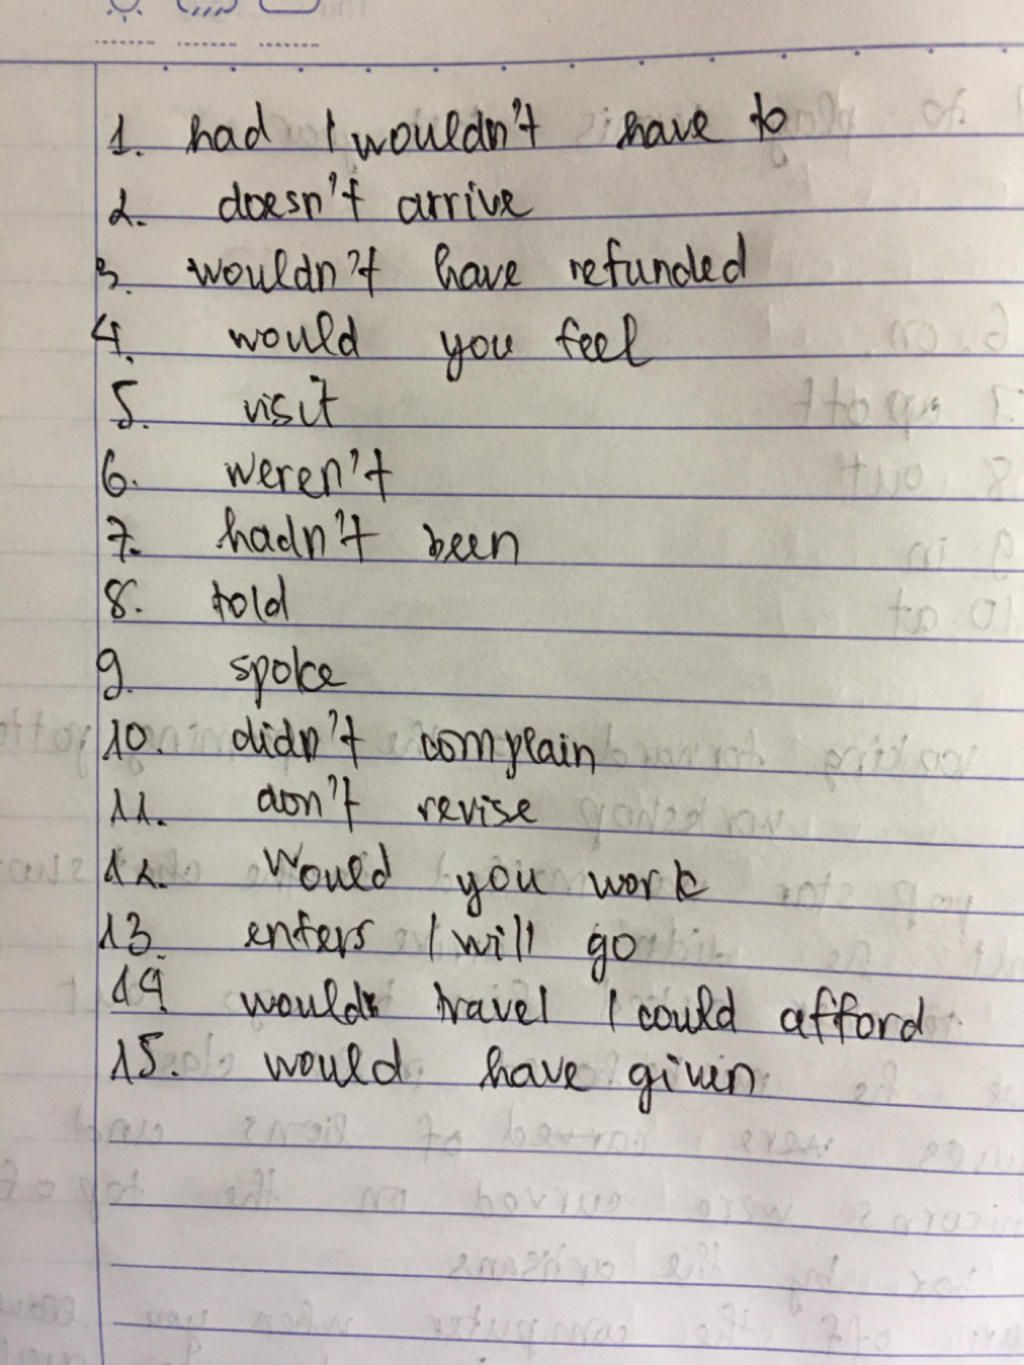 1. had / wouldn't have to
2. doesn't arrive
3. wouldn't have refunded
4. would you feel
5. visit
6. weren't
7. hadn't been
8. told
9. spoke
10. didn't complain
11. don't revise
12. Would you work
13. enters / will go
14 would travel / could afford
15. would have given